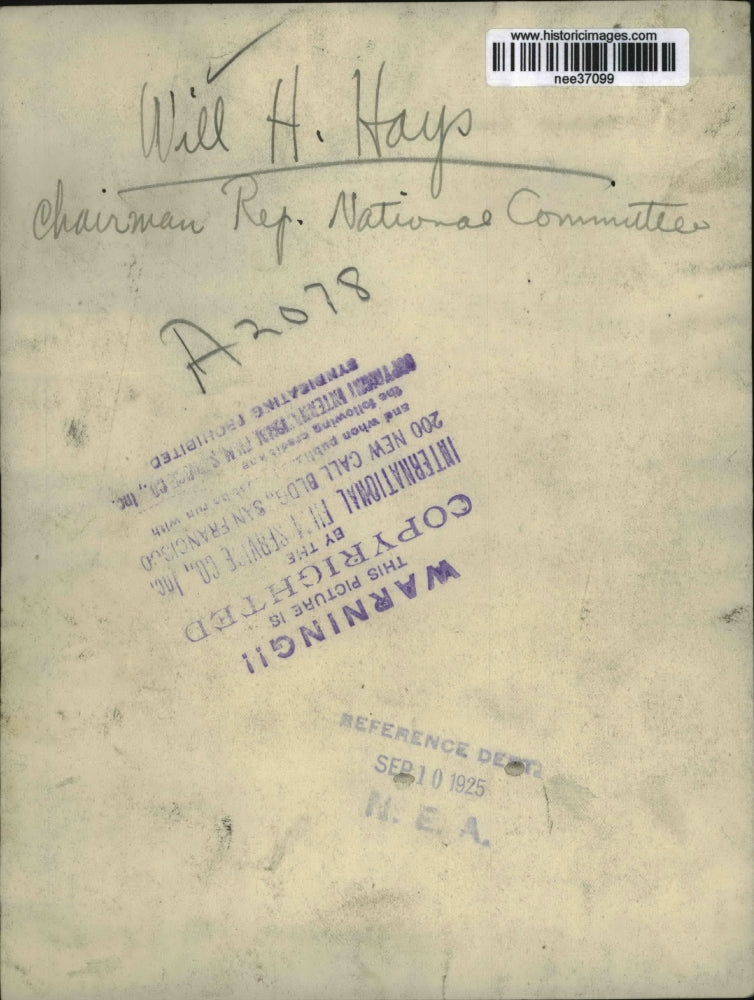 www.historicimages.com
nee37099
Will H. Hays
Chairman Rep. National Committee
A2078
WARNING!!
THIS PICTURE IS
COPYRIGHTED
BY THE
INTERNATIONAL FILM SERVICE CO., Inc.
200 NEW CALL BLDG., SAN FRANCISCO
and when run with
the following credit line
COPYRIGHT INTERNATIONAL FILM SERVICE CO., Inc.
SYNDICATING PROHIBITED
REFERENCE DEPT.
SEP 10 1925
N. E. A.